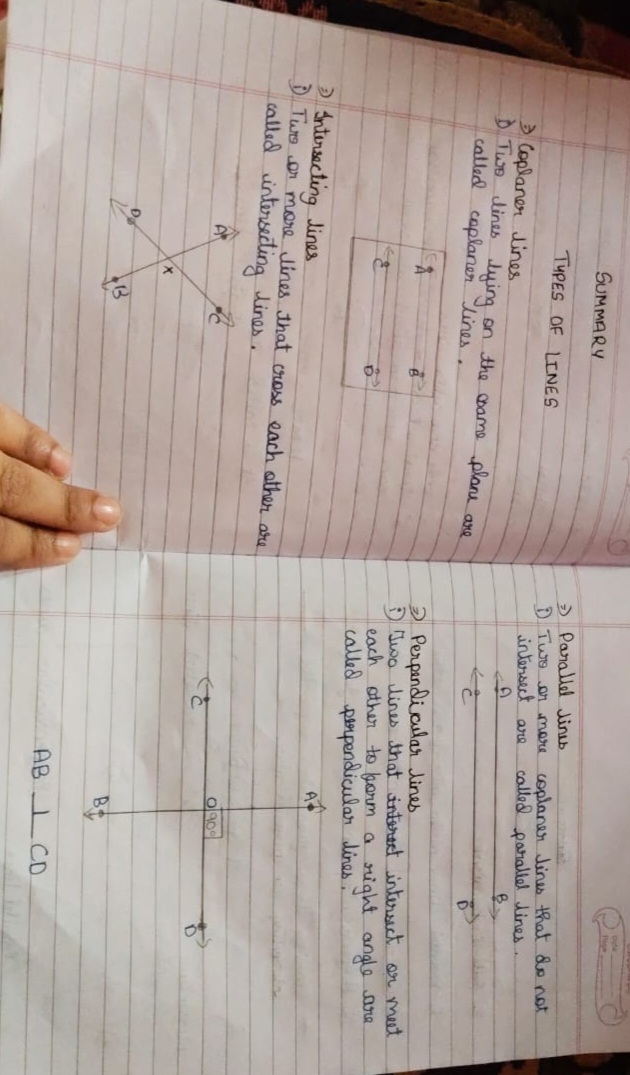 SUMMARY
TYPES OF LINES
⇒ Coplaner lines
① Two lines lying on the same plane are
called coplaner lines.
A B
C D
⇒ Intersecting lines
① Two or more lines that cross each other are
called intersecting lines.
A C
X
D B
⇒ Parallel lines
① Two or more coplaner lines that do not
intersect are called parallel lines.
A B
C D
⇒ Perpendicular lines
① Two lines that interect intersect or meet
each other to form a right angle are
called perpendicular lines.
A
C O 90° D
B
AB ⊥ CD